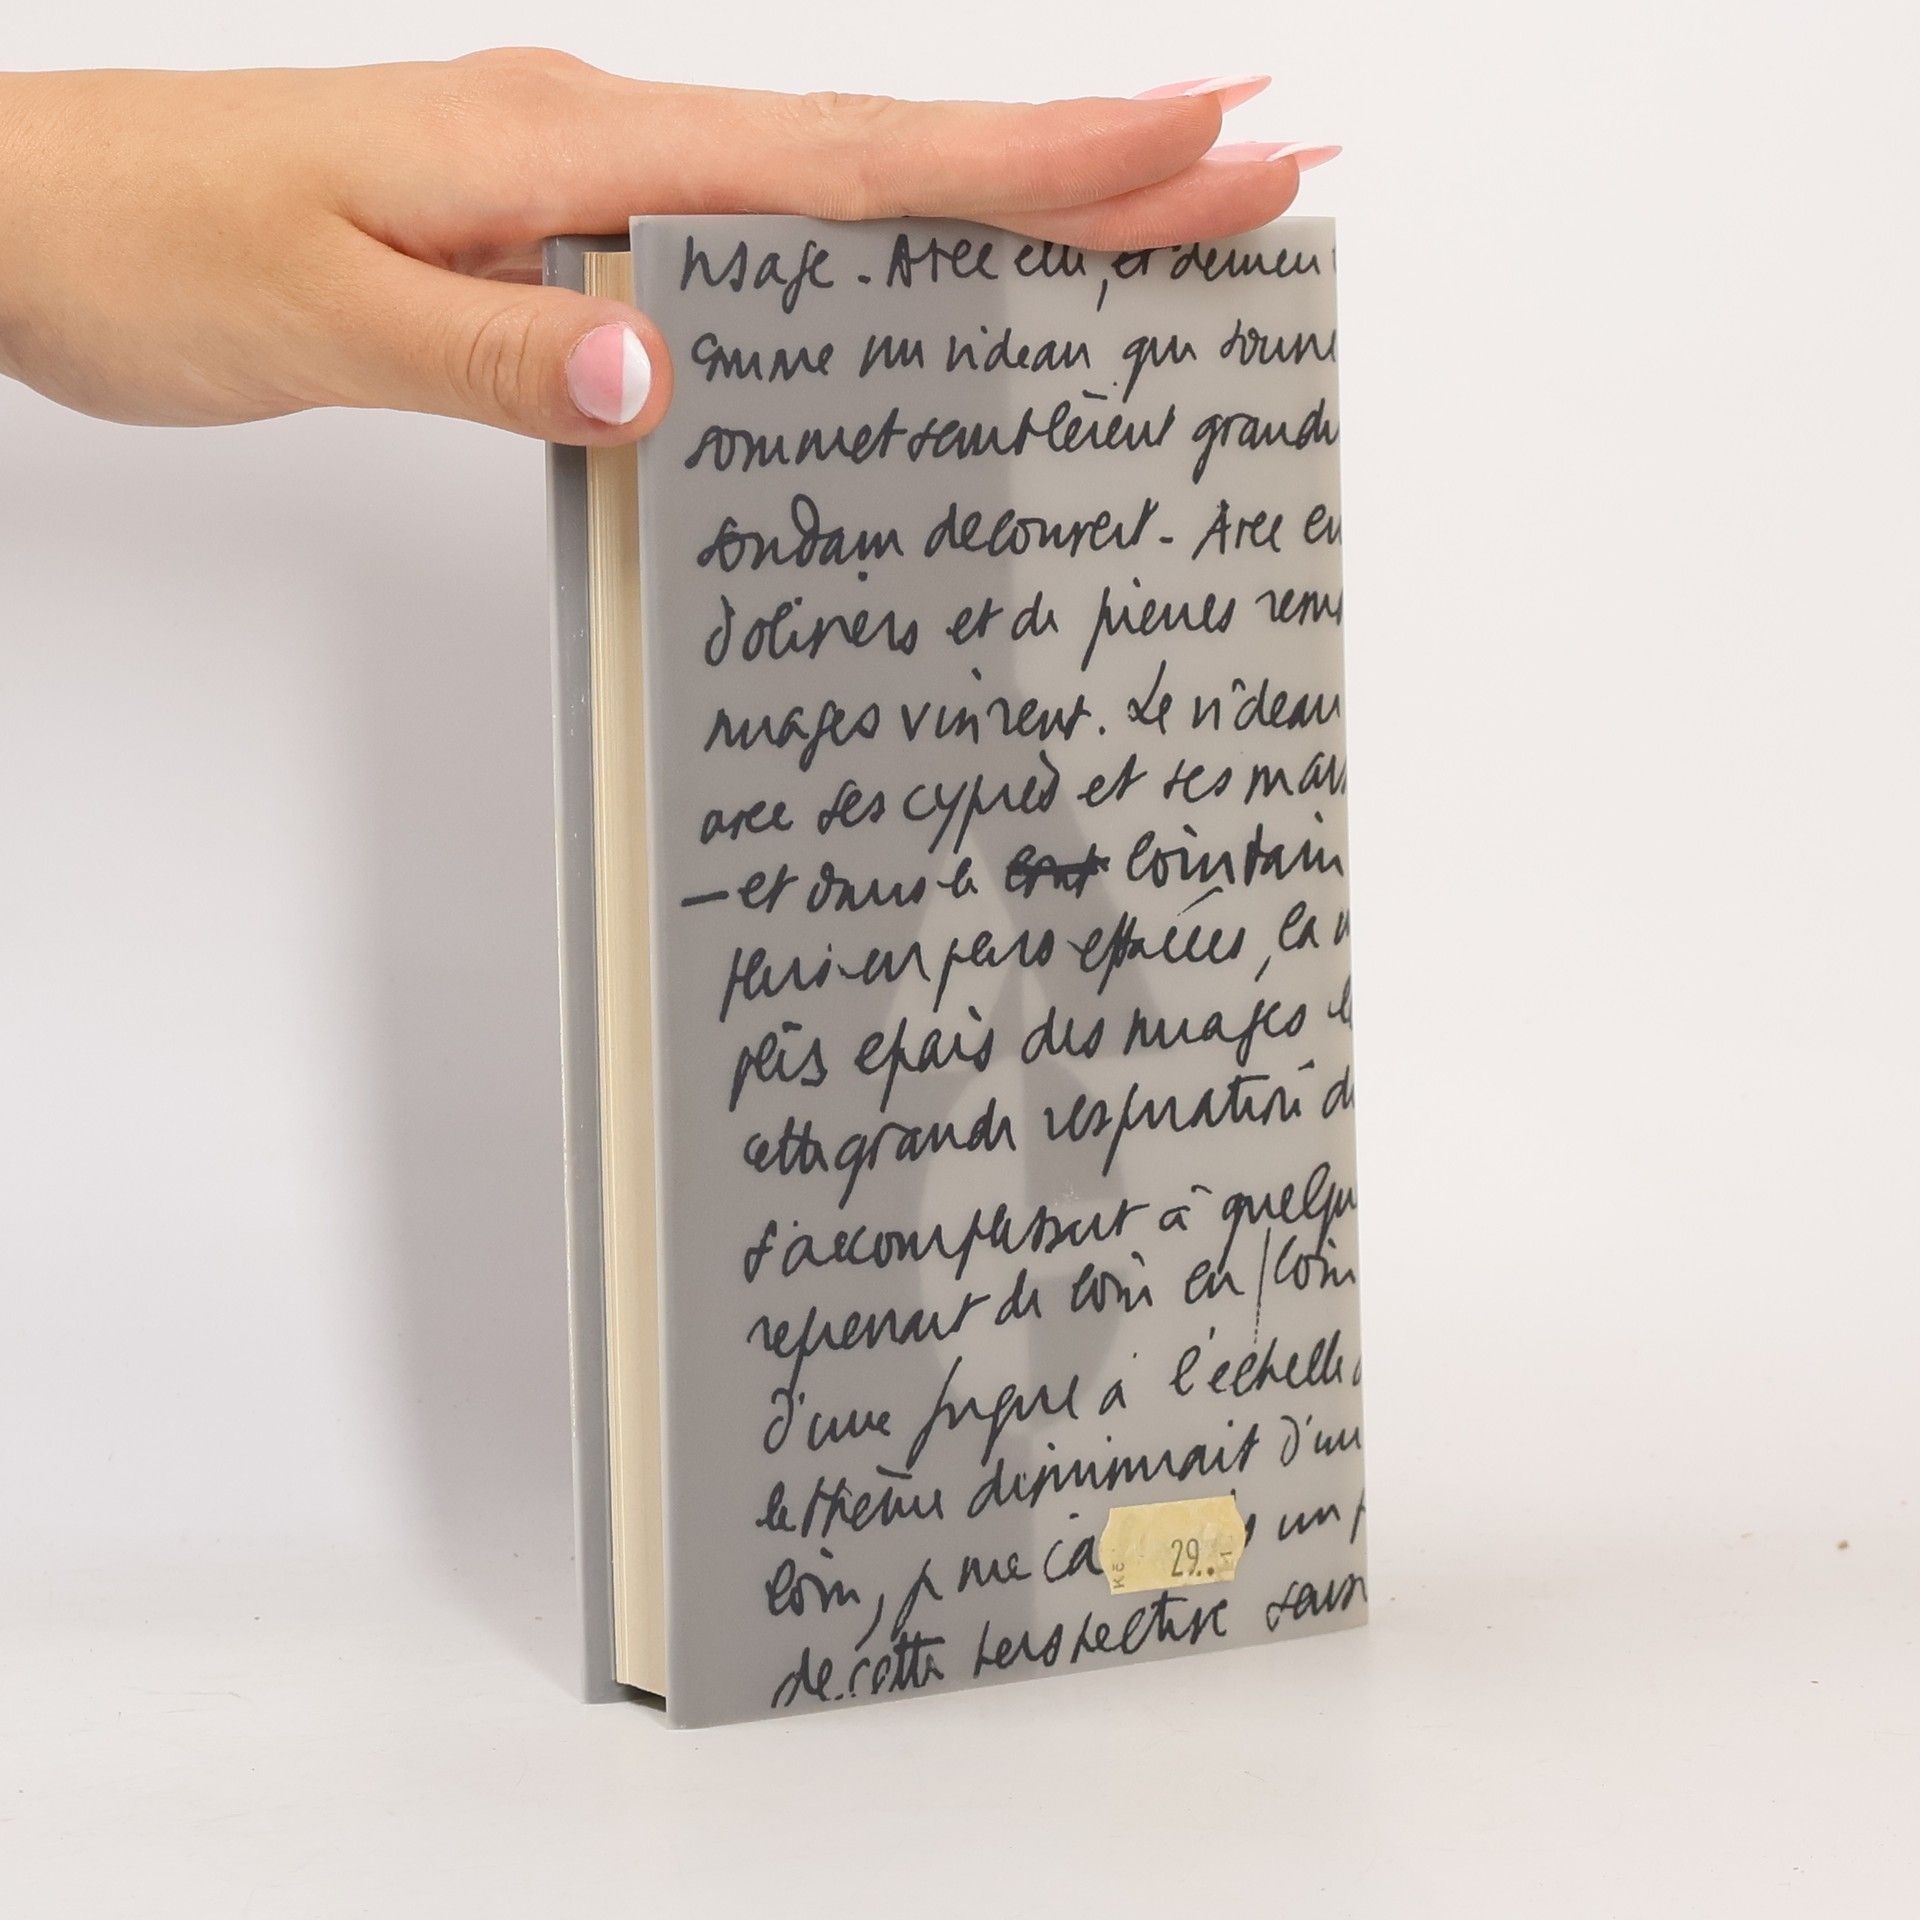 visage. Avec elle, et derrière
comme un rideau qui
sommet semblèrent grandi
soudain découvert. Avec en
d'oliviers et de pierres
nuages vinrent. Le rideau
avec ses cyprès et ses
—et dans le lointain
plus en plus espacées, la
plus épais des nuages
cette grande respiration d
s'accomplissait à quelqu
reprenait de loin en loin
d'une fugue à l'échelle
le thème diminuait d'un
loin, un
de cette perspective sans
Kč 29..